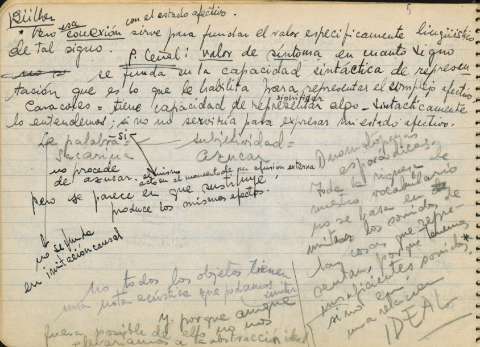 con el estado afectivo.
* Pero esa conexión sirve para fundar el valor específicamente lingüístico
de tal signo. P. Ceñal: valor de síntoma en cuanto signo
se funda en la capacidad sintáctica de represen-
tación que es lo que le habilita para representar el complejo afectivo
Caracoles = tiene capacidad de representar algo. Sintácticamente
lo entendemos; si no no serviría para expresar un estado afectivo.
La palabra = Si subjetividad =
Sacarina azucar
no procede
de azucar.
pero se parece en que sustituye,
produce los mismos efectos.
no se funda
en imitación causal
Onomatopeyas
esporádicas
Toda la riqueza de
nuestro vocabulario
no se basa en
imitar los sonidos de
las cosas que repre-
sentan, porque tenemos
insuficientes sonidos,
sino en
una relación
IDEAL
no todos los objetos tienen
una nota acústica que podamos imitar
y porque aunque
fuera posible de ello no nos
elevaríamos a la abstracción ideal